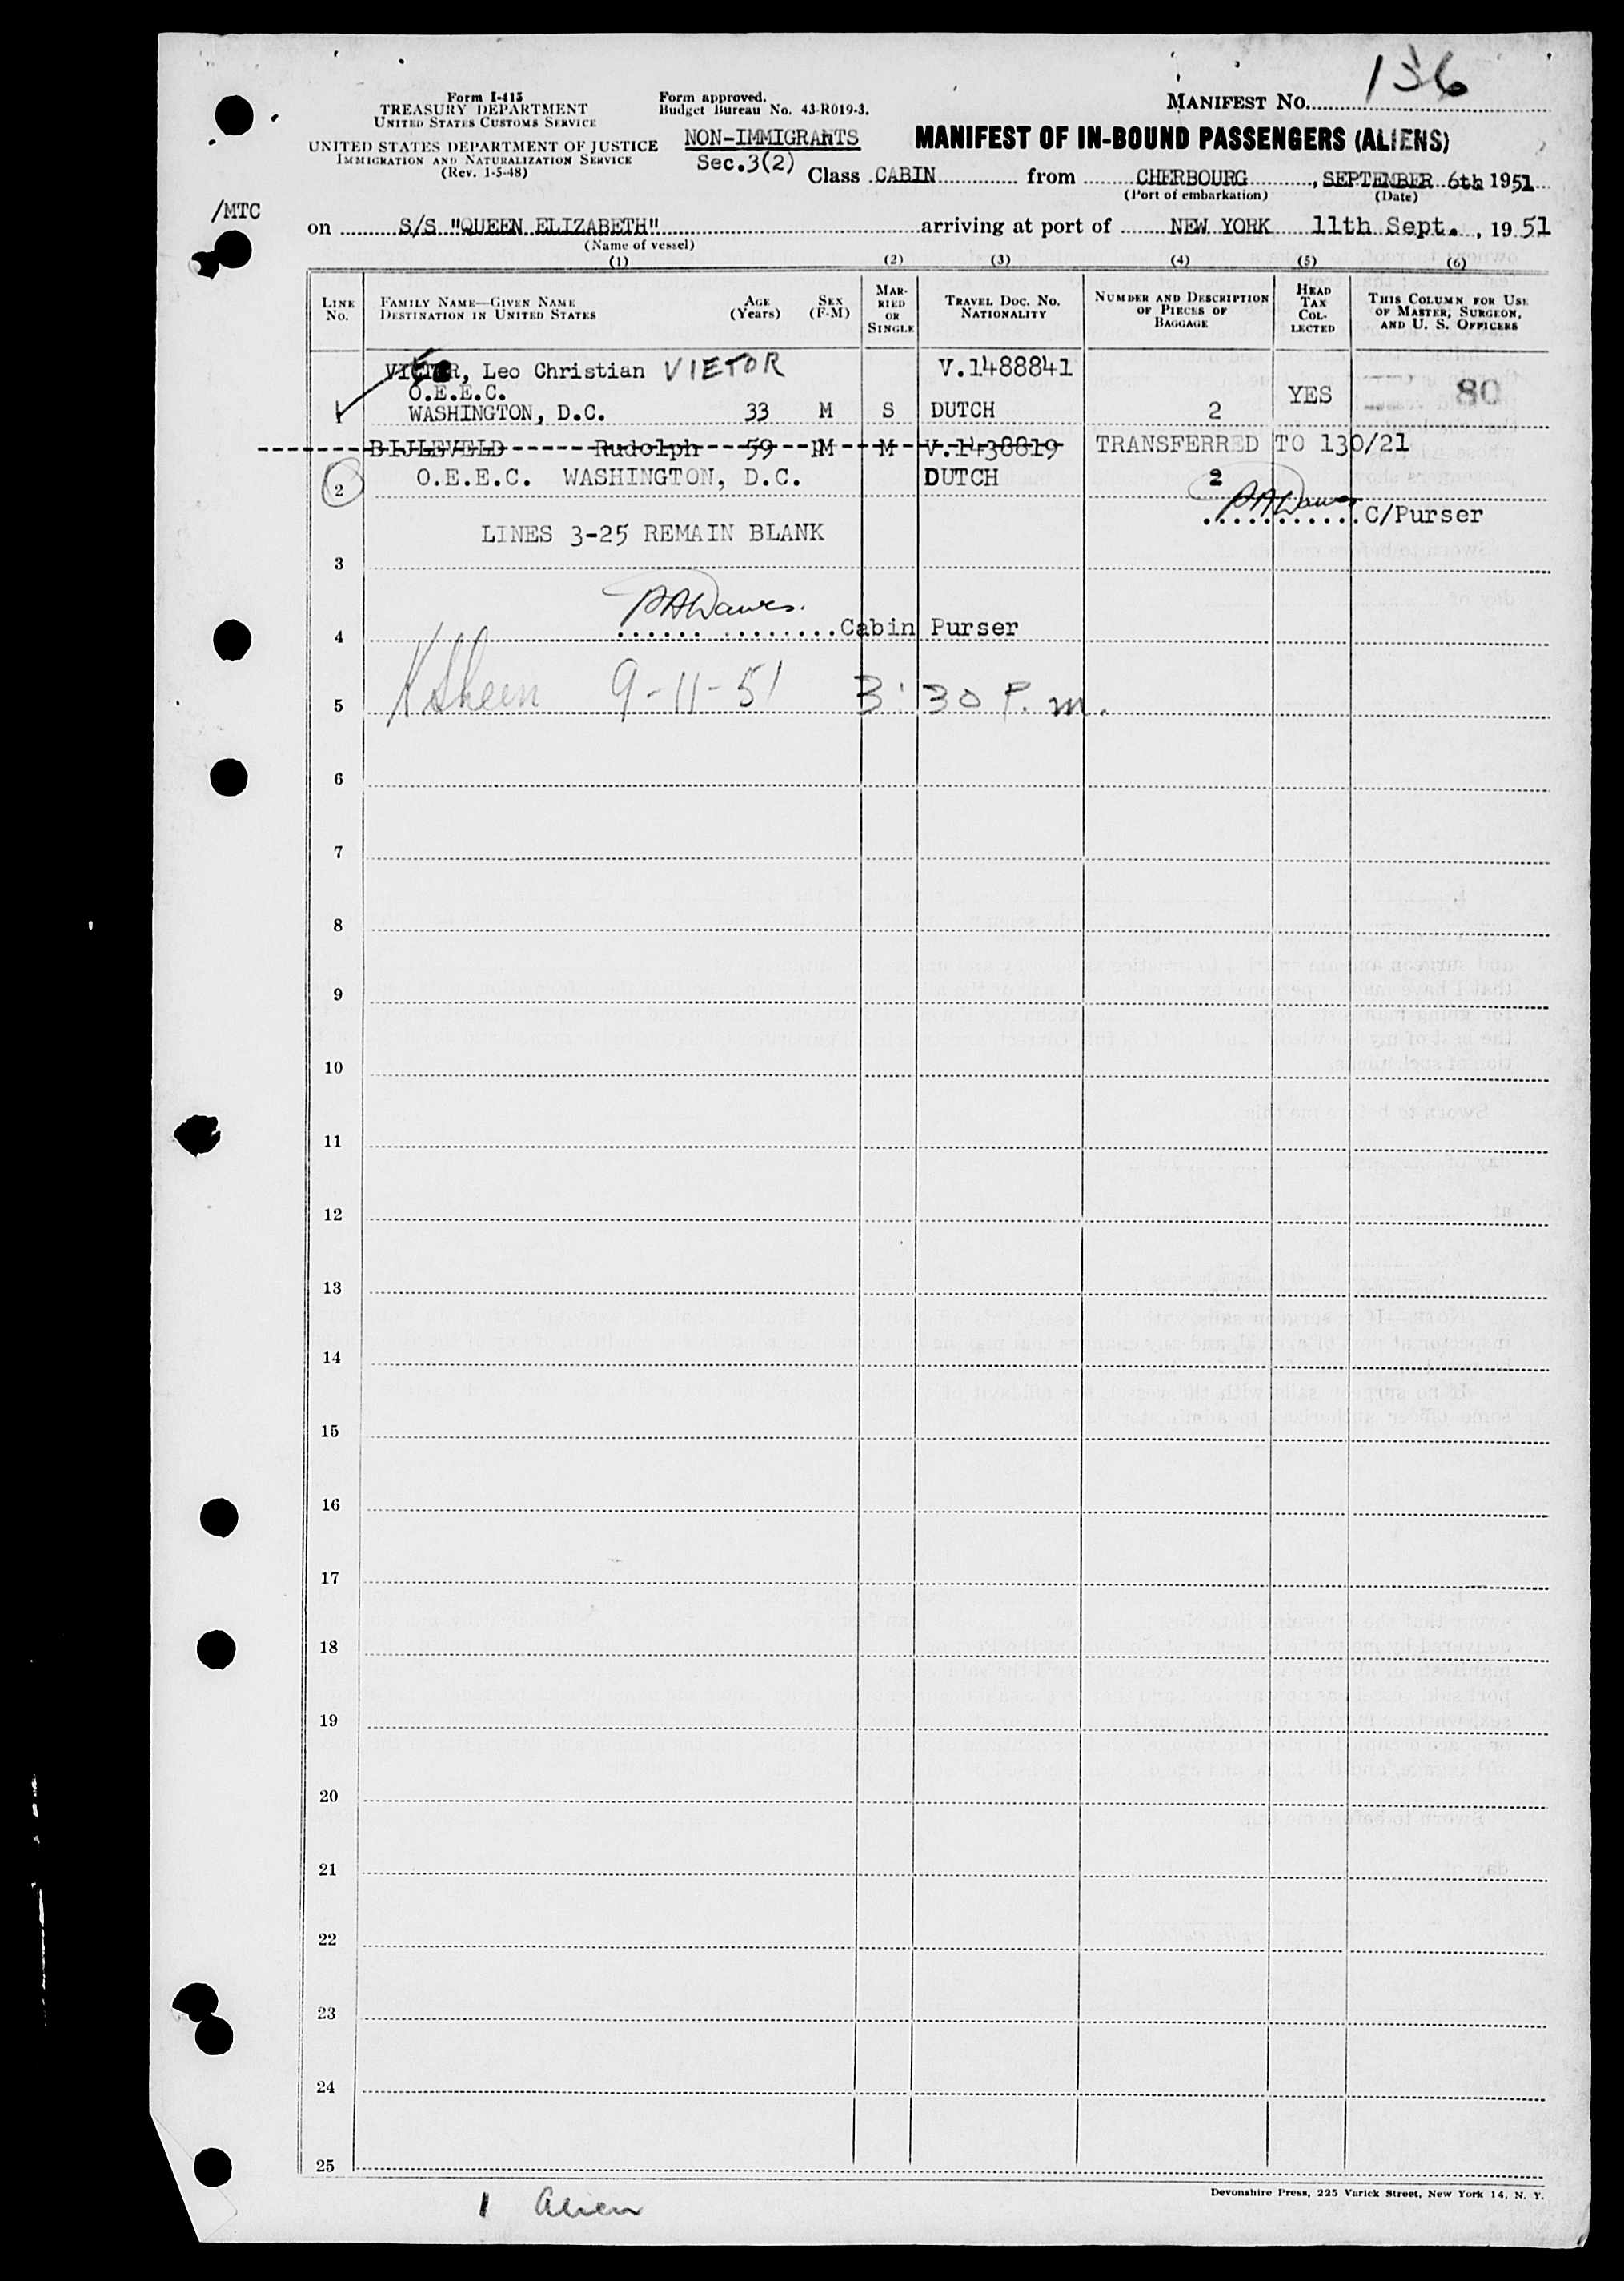 136
Form I-415
TREASURY DEPARTMENT
UNITED STATES CUSTOMS SERVICE
UNITED STATES DEPARTMENT OF JUSTICE
IMMIGRATION AND NATURALIZATION SERVICE
(Rev. 1-5-48)
Form approved.
Budget Bureau No. 43-R019-3.
NON-IMMIGRANTS
Sec.3(2)
MANIFEST NO.
MANIFEST OF IN-BOUND PASSENGERS (ALIENS)
Class CABIN from CHERBOURG, SEPTEMBER 6th 1951
(Port of embarkation) (Date)
/MTC
on S/S "QUEEN ELIZABETH" arriving at port of NEW YORK 11th Sept., 1951
(Name of vessel)
(1) (2) (3) (4) (5) (6)
LINE No.
FAMILY NAME—GIVEN NAME
DESTINATION IN UNITED STATES
AGE (Years)
SEX (F-M)
MARRIED OR SINGLE
TRAVEL DOC. NO. NATIONALITY
NUMBER AND DESCRIPTION OF PIECES OF BAGGAGE
HEAD TAX COLLECTED
THIS COLUMN FOR USE OF MASTER, SURGEON, AND U. S. OFFICERS
Leo Christian VIETOR V.1488841
O.E.E.C.
1 WASHINGTON, D.C. 33 M S DUTCH 2 YES 80
BIJLEVELD Rudolph 59 M M V.1438819 TRANSFERRED TO 130/21
2 O.E.E.C. WASHINGTON, D.C. DUTCH 2
C/Purser
LINES 3-25 REMAIN BLANK
3
4 Cabin Purser
5 9-11-51 3:30 P.m.
6
7
8
9
10
11
12
13
14
15
16
17
18
19
20
21
22
23
24
25
Devonshire Press, 225 Varick Street, New York 14, N. Y.
1 Alien